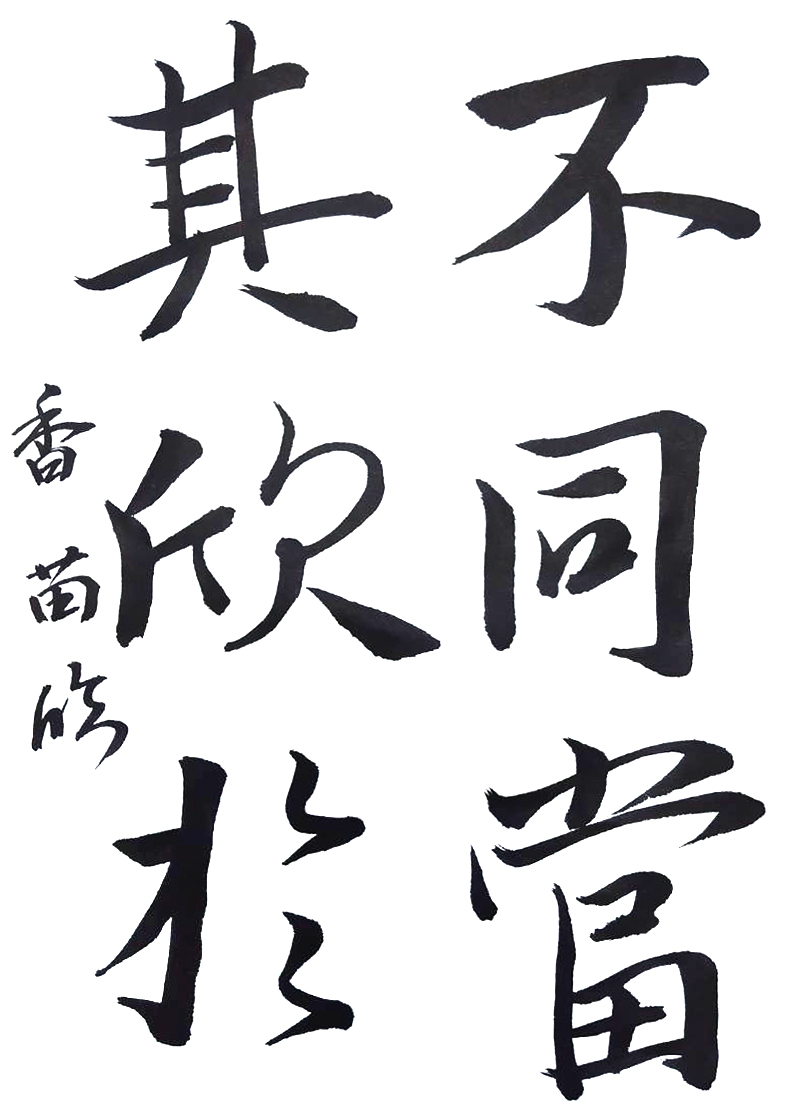 不同當
其欣於
香苗臨